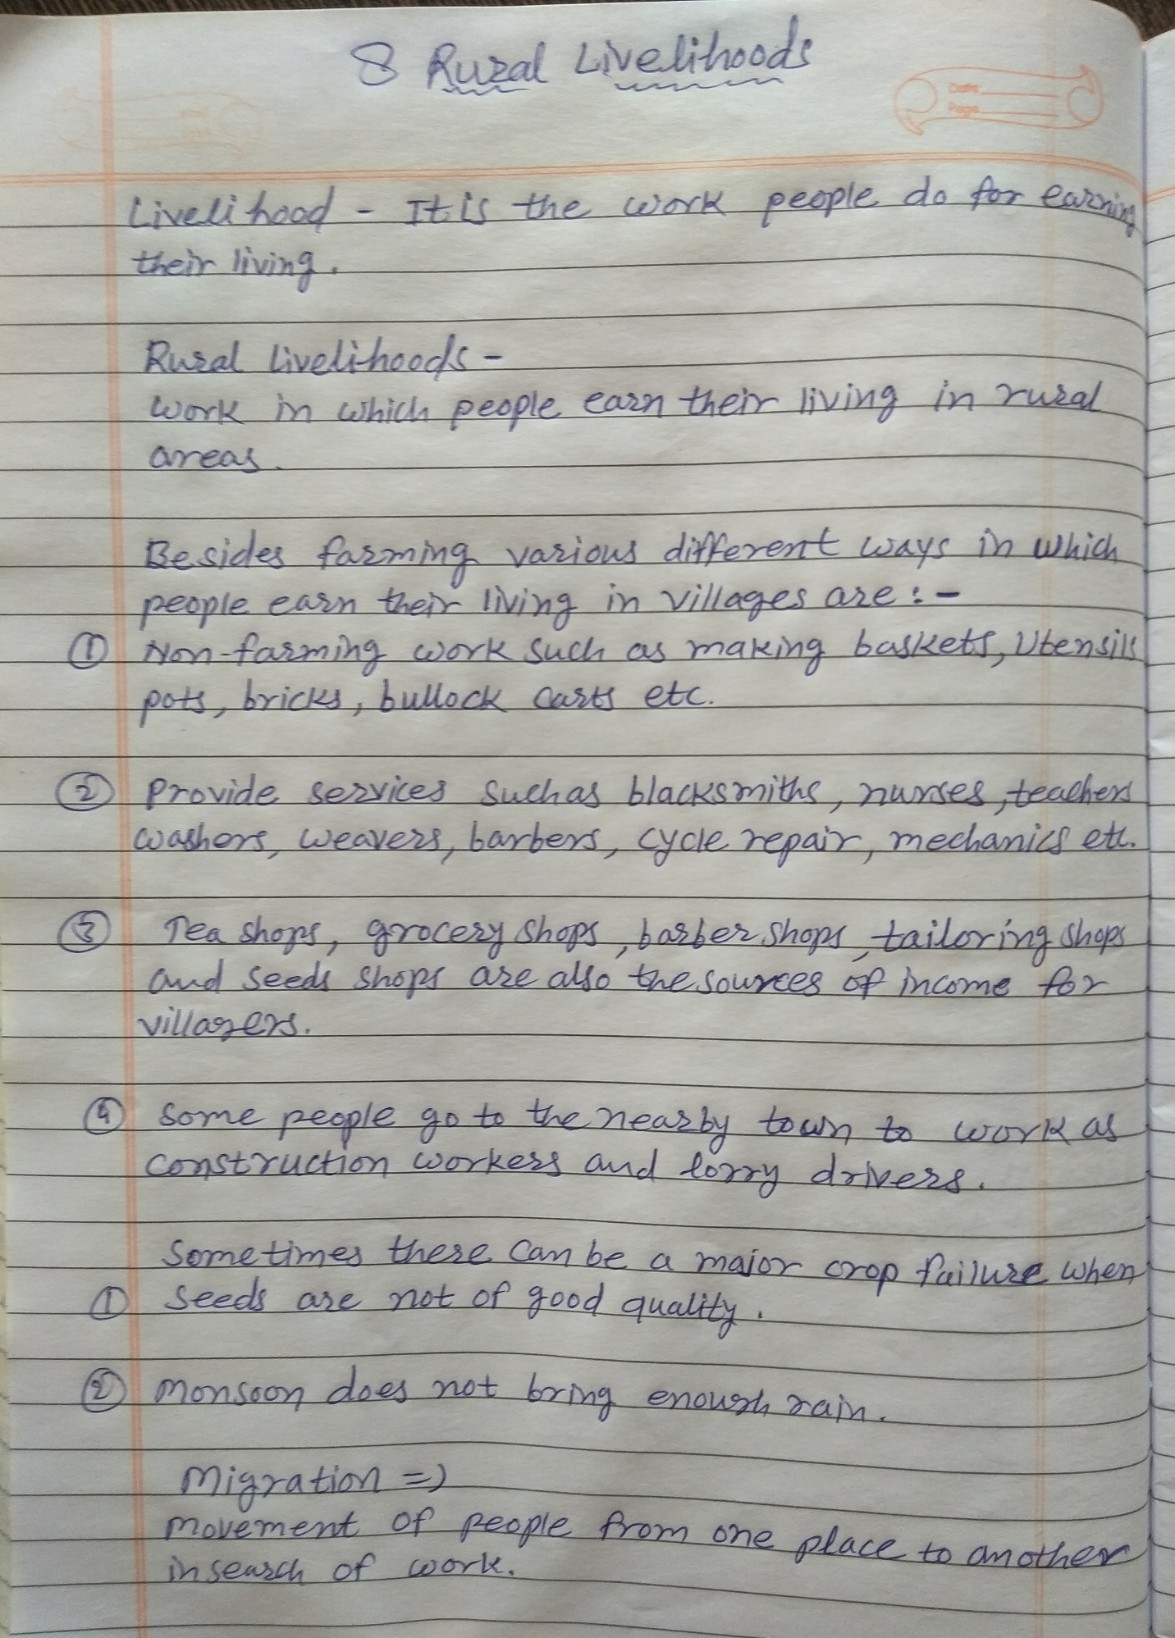 8 Rural Livelihoods
Date
Page
Livelihood - It is the work people do for earning
their living.
Rural Livelihoods -
Work in which people earn their living in rural
areas.
Besides farming various different ways in which
people earn their living in villages are :-
① Non-farming work such as making baskets, Utensils
pots, bricks, bullock carts etc.
② Provide services such as blacksmiths, nurses, teachers
washers, weavers, barbers, cycle repair, mechanics etc.
③ Tea shops, grocery shops, barber shops, tailoring shops
and seeds shops are also the sources of income for
villagers.
④ Some people go to the nearby town to work as
construction workers and lorry drivers.
Sometimes there can be a major crop failure when
① Seeds are not of good quality.
② Monsoon does not bring enough rain.
Migration =>
Movement of people from one place to another
in search of work.